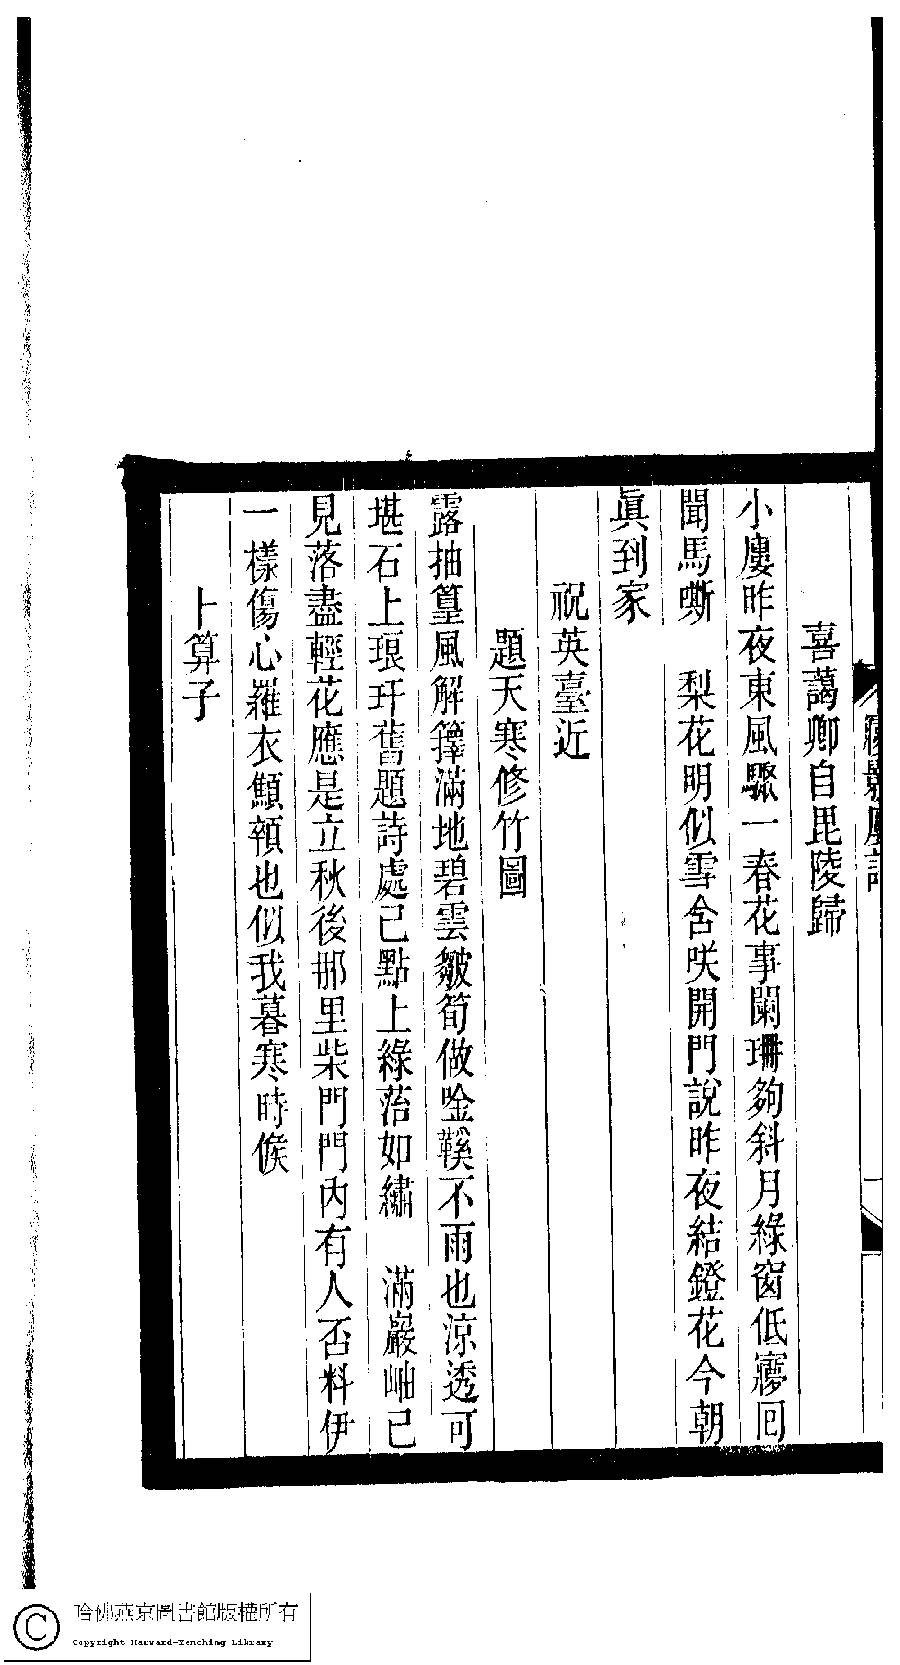 喜藹卿自毘陵歸
小廔昨夜東風驟一春花事闌珊夠斜月綠窗低寢回
聞馬嘶　梨花明似雪含咲開門說昨夜結鐙花今朝
眞到家
祝英臺近
題天寒修竹圖
露抽篁風解籜滿地碧雲皺筍做唫鞵不雨也涼透可
堪石上琅玕舊題詩處已點上綠菭如繡　滿巖岫已
見落盡輕花應是立秋後那里柴門門內有人否料伊
一樣傷心羅衣顦顇也似我暮寒時候
卜算子
哈佛燕京圖書館版權所有
Copyright Harvard-Yenching Library